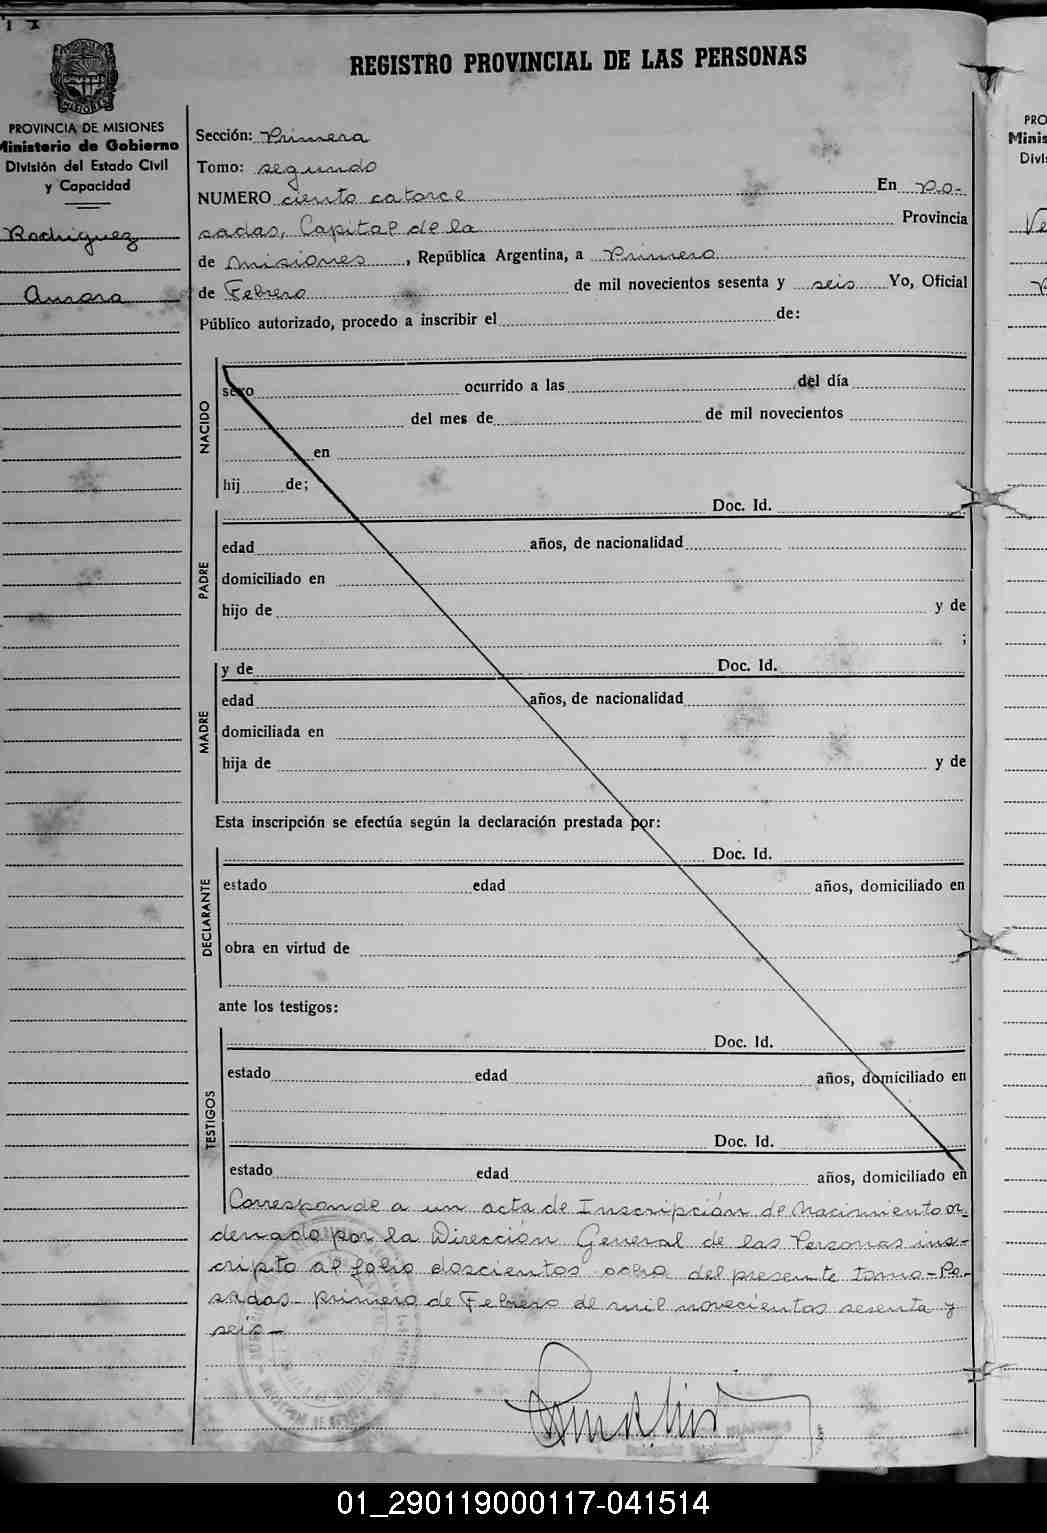 REGISTRO PROVINCIAL DE LAS PERSONAS
PROVINCIA DE MISIONES
Ministerio de Gobierno
División del Estado Civil
y Capacidad
Rodriguez
Aurora
Sección: Primera
Tomo: segundo
NUMERO ciento catorce En Po-
sadas, Capital de la Provincia
de Misiones, República Argentina, a Primero
de Febrero de mil novecientos sesenta y seis Yo, Oficial
Público autorizado, procedo a inscribir el de:
NACIDO
sexo ocurrido a las del día
del mes de de mil novecientos
en
hij de;
Doc. Id.
PADRE
edad años, de nacionalidad
domiciliado en
hijo de y de
;
MADRE
y de Doc. Id.
edad años, de nacionalidad
domiciliada en
hija de y de
Esta inscripción se efectúa según la declaración prestada por:
DECLARANTE
Doc. Id.
estado edad años, domiciliado en
obra en virtud de
ante los testigos:
TESTIGOS
Doc. Id.
estado edad años, domiciliado en
Doc. Id.
estado edad años, domiciliado en
Corresponde a un acta de Inscripción de Nacimiento or-
denado por la Dirección General de las Personas ins-
cripto al folio doscientos ocho del presente tomo - Po-
sadas Primero de Febrero de mil novecientos sesenta y
seis -
PRO
Minis
Divi
Ve
01_290119000117-041514